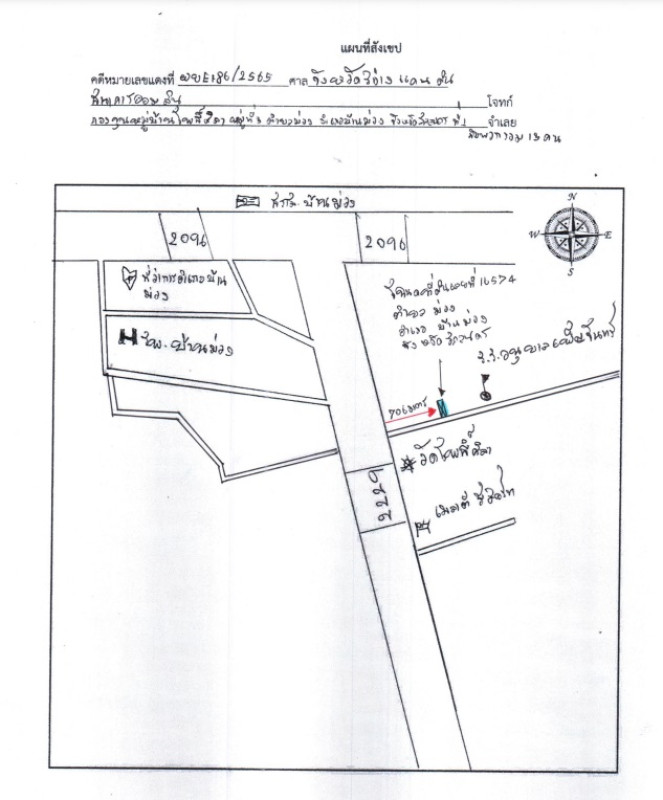 แผนที่สังเขป
คดีหมายเลขแดงที่ ผบE186/2565 ศาล จังหวัดสว่างแดนดิน
ธนาคารออมสิน โจทก์
กองทุนหมู่บ้านโพธิ์ศิลา หมู่ที่ ตำบลม่วง อำเภอบ้านม่วง จังหวัดสกลนคร ที่ 1 จำเลย
กับพวกรวม 13 คน
สภ. บ้านม่วง
N
2096
2096
W
E
S
ที่ว่าการอำเภอบ้าน
ม่วง
โฉนดที่ดินเลขที่ 16574
ตำบล ม่วง
อำเภอ บ้านม่วง
จังหวัด สกลนคร
H รพ. บ้านม่วง
ร.ร.อนุบาล
706 เมตร
วัดโพธิ์ศิลา
2229